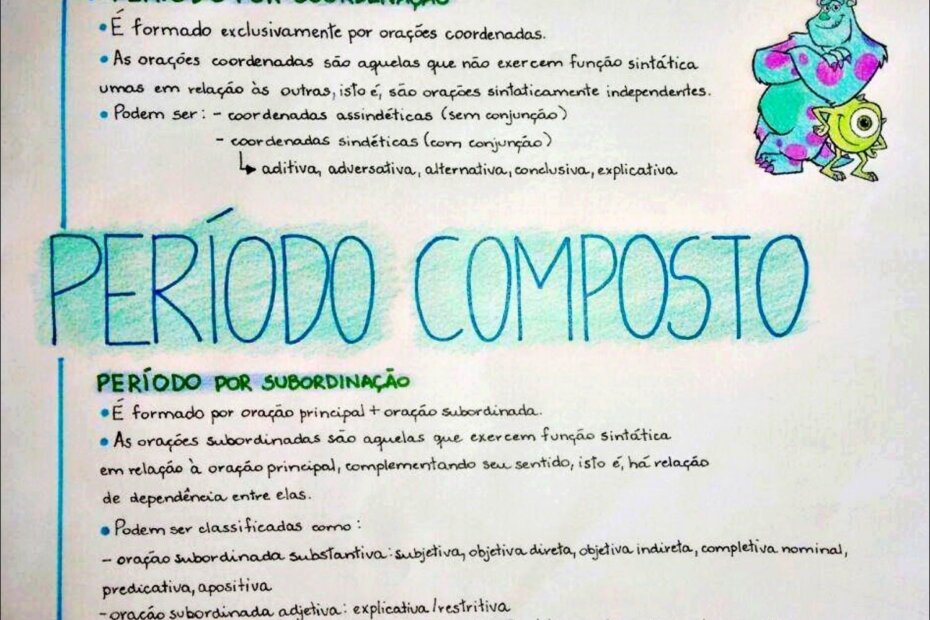 PERÍODO POR COORDENAÇÃO
• É formado exclusivamente por orações coordenadas.
• As orações coordenadas são aquelas que não exercem função sintática
umas em relação às outras, isto é, são orações sintaticamente independentes.
• Podem ser: - coordenadas assindéticas (sem conjunção)
- coordenadas sindéticas (com conjunção)
↳ aditiva, adversativa, alternativa, conclusiva, explicativa
PERÍODO COMPOSTO
PERÍODO POR SUBORDINAÇÃO
• É formado por oração principal + oração subordinada.
• As orações subordinadas são aquelas que exercem função sintática
em relação à oração principal, complementando seu sentido, isto é, há relação
de dependência entre elas.
• Podem ser classificadas como:
- oração subordinada substantiva: subjetiva, objetiva direta, objetiva indireta, completiva nominal,
predicativa, apositiva
- oração subordinada adjetiva: explicativa/restritiva